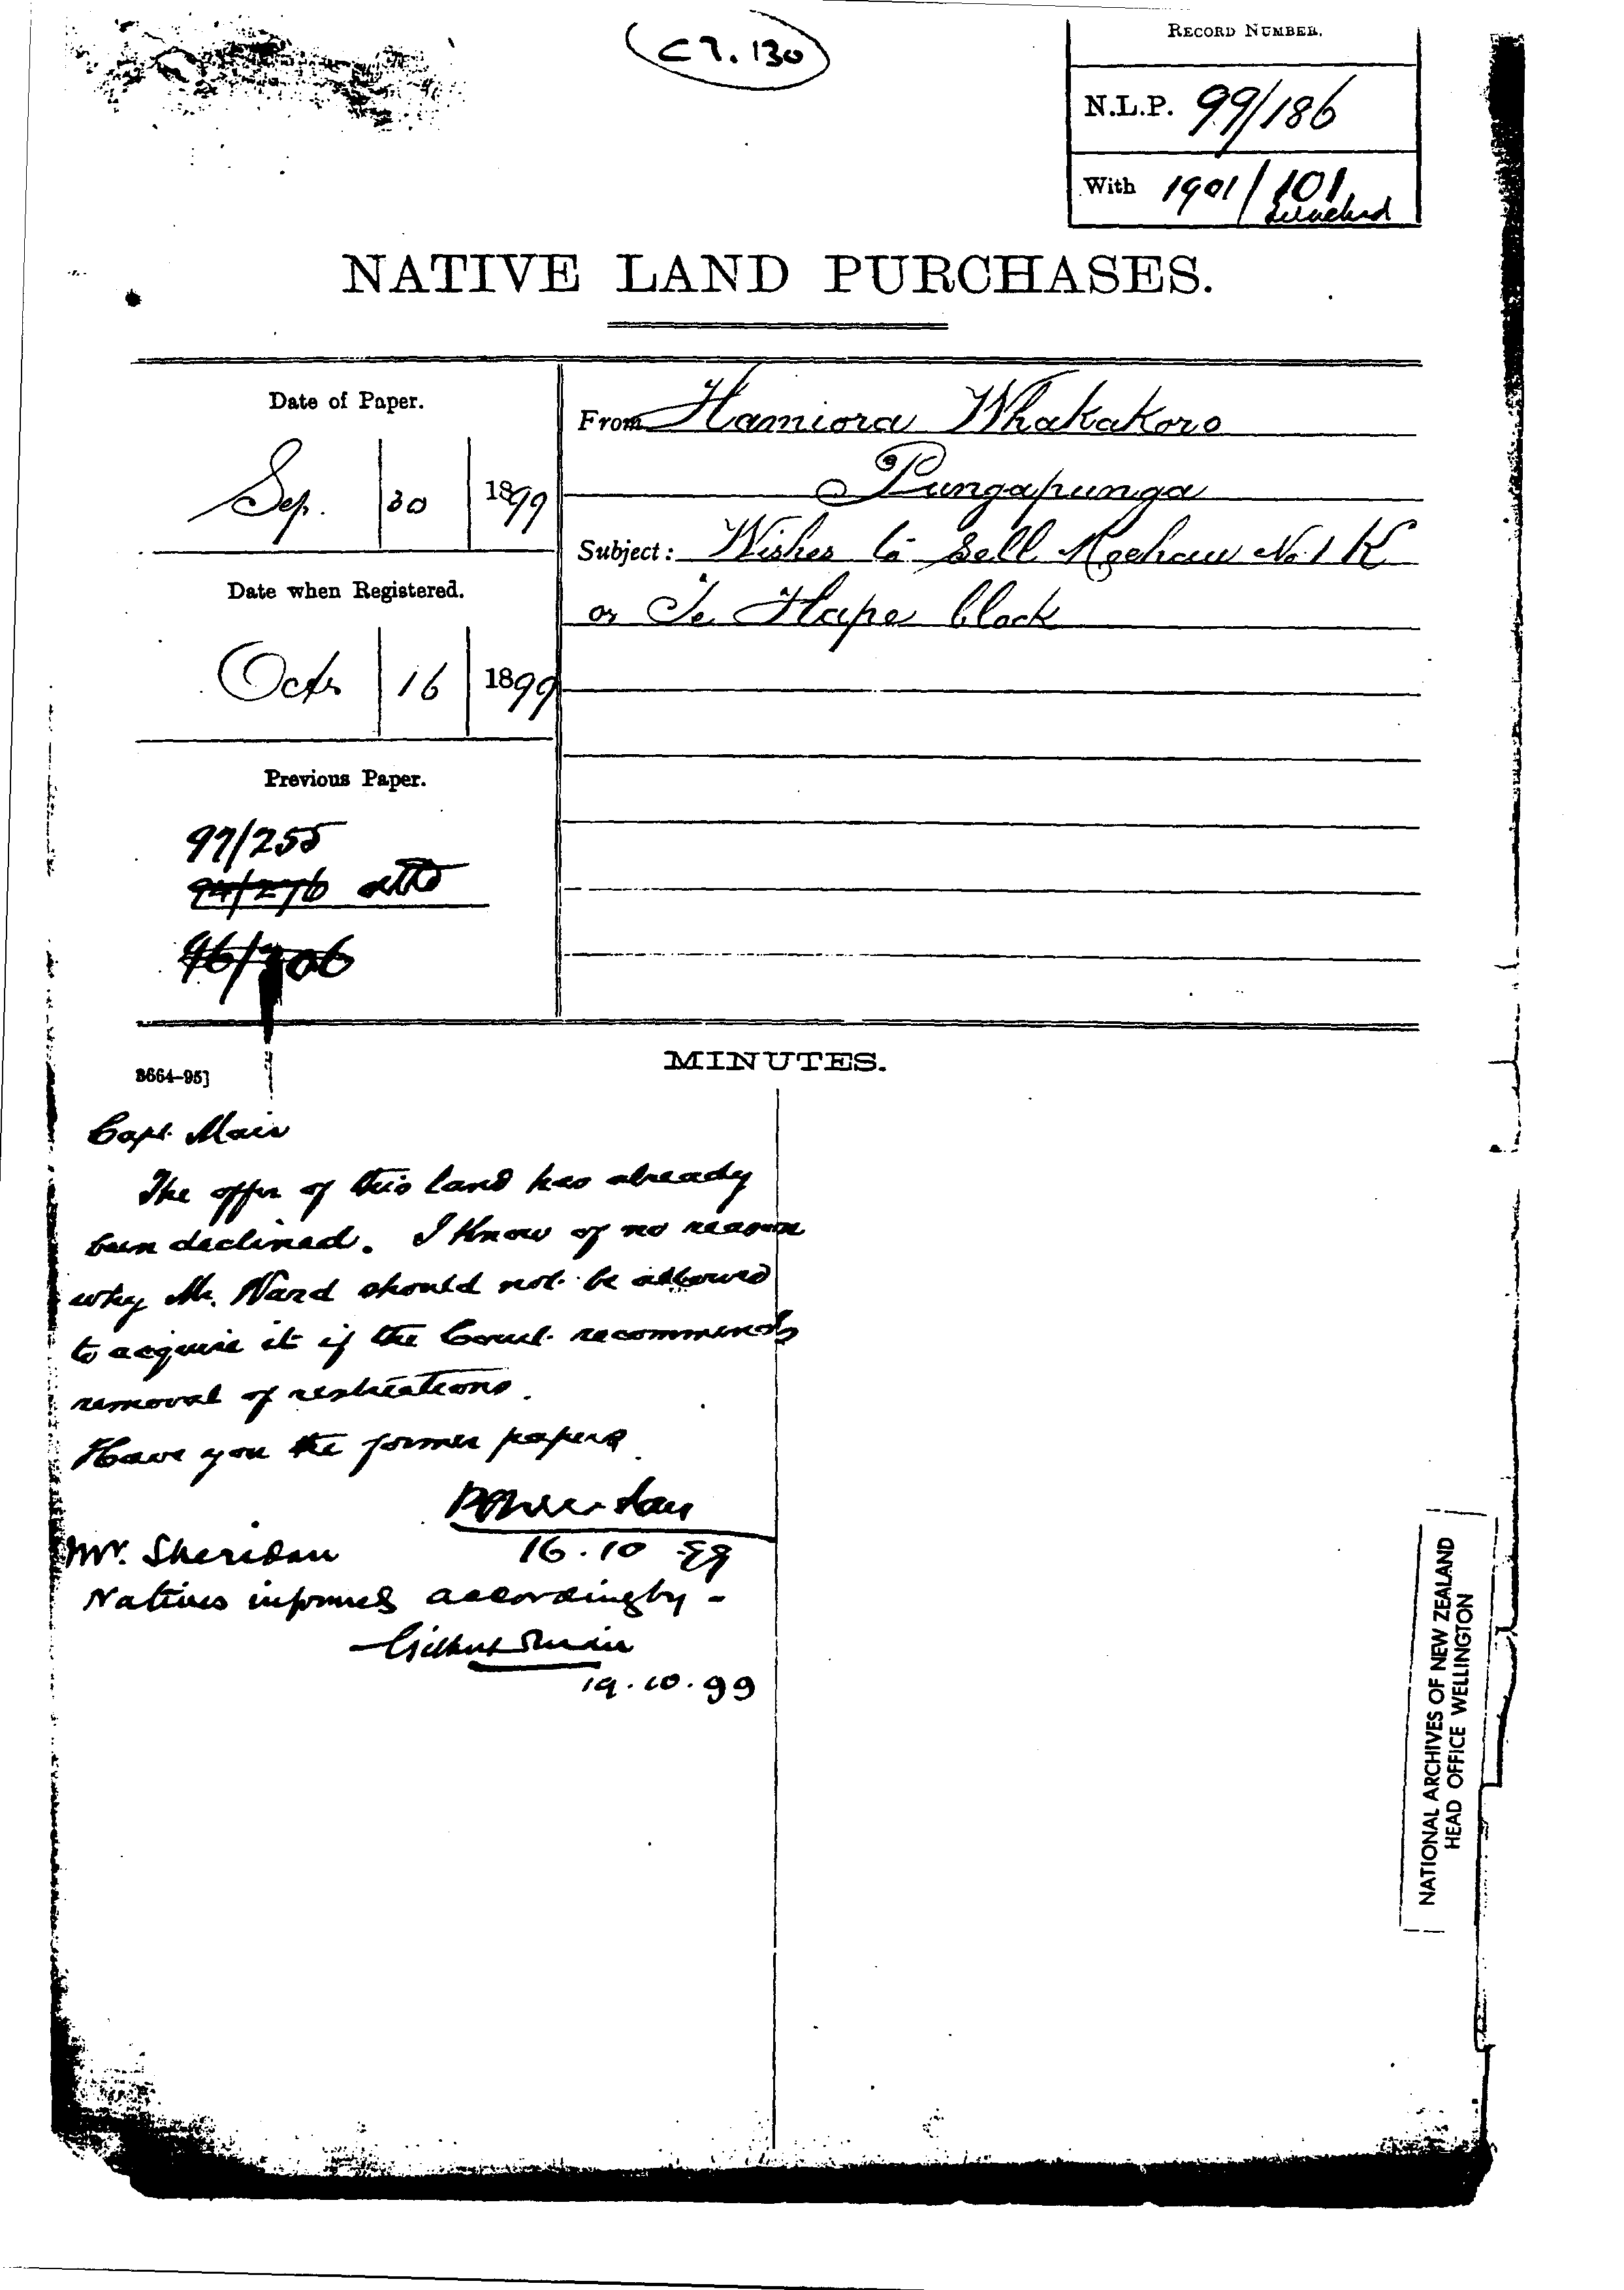 C7.130
RECORD NUMBER.
N.L.P. 99/186
With 1901/101
NATIVE LAND PURCHASES.
Date of Paper.
Sep. 30 1899
Date when Registered.
Octr 16 1899
Previous Paper.
97/255
94/276
96/206
From Hamiora Whakakoro
Pungapunga
Subject: Wishes to sell No. 1 K
or Te Hape block
MINUTES.
3664-95]
Capt. Mair
The offer of this land has already
been declined. I know of no reason
why Mr. Ward should not be allowed
to acquire it if the Court recommends
removal of restrictions.
Have you the former papers
16.10.99
Mr. Sheridan
Natives informed accordingly -
Gilbert Mair
19.10.99
NATIONAL ARCHIVES OF NEW ZEALAND
HEAD OFFICE WELLINGTON